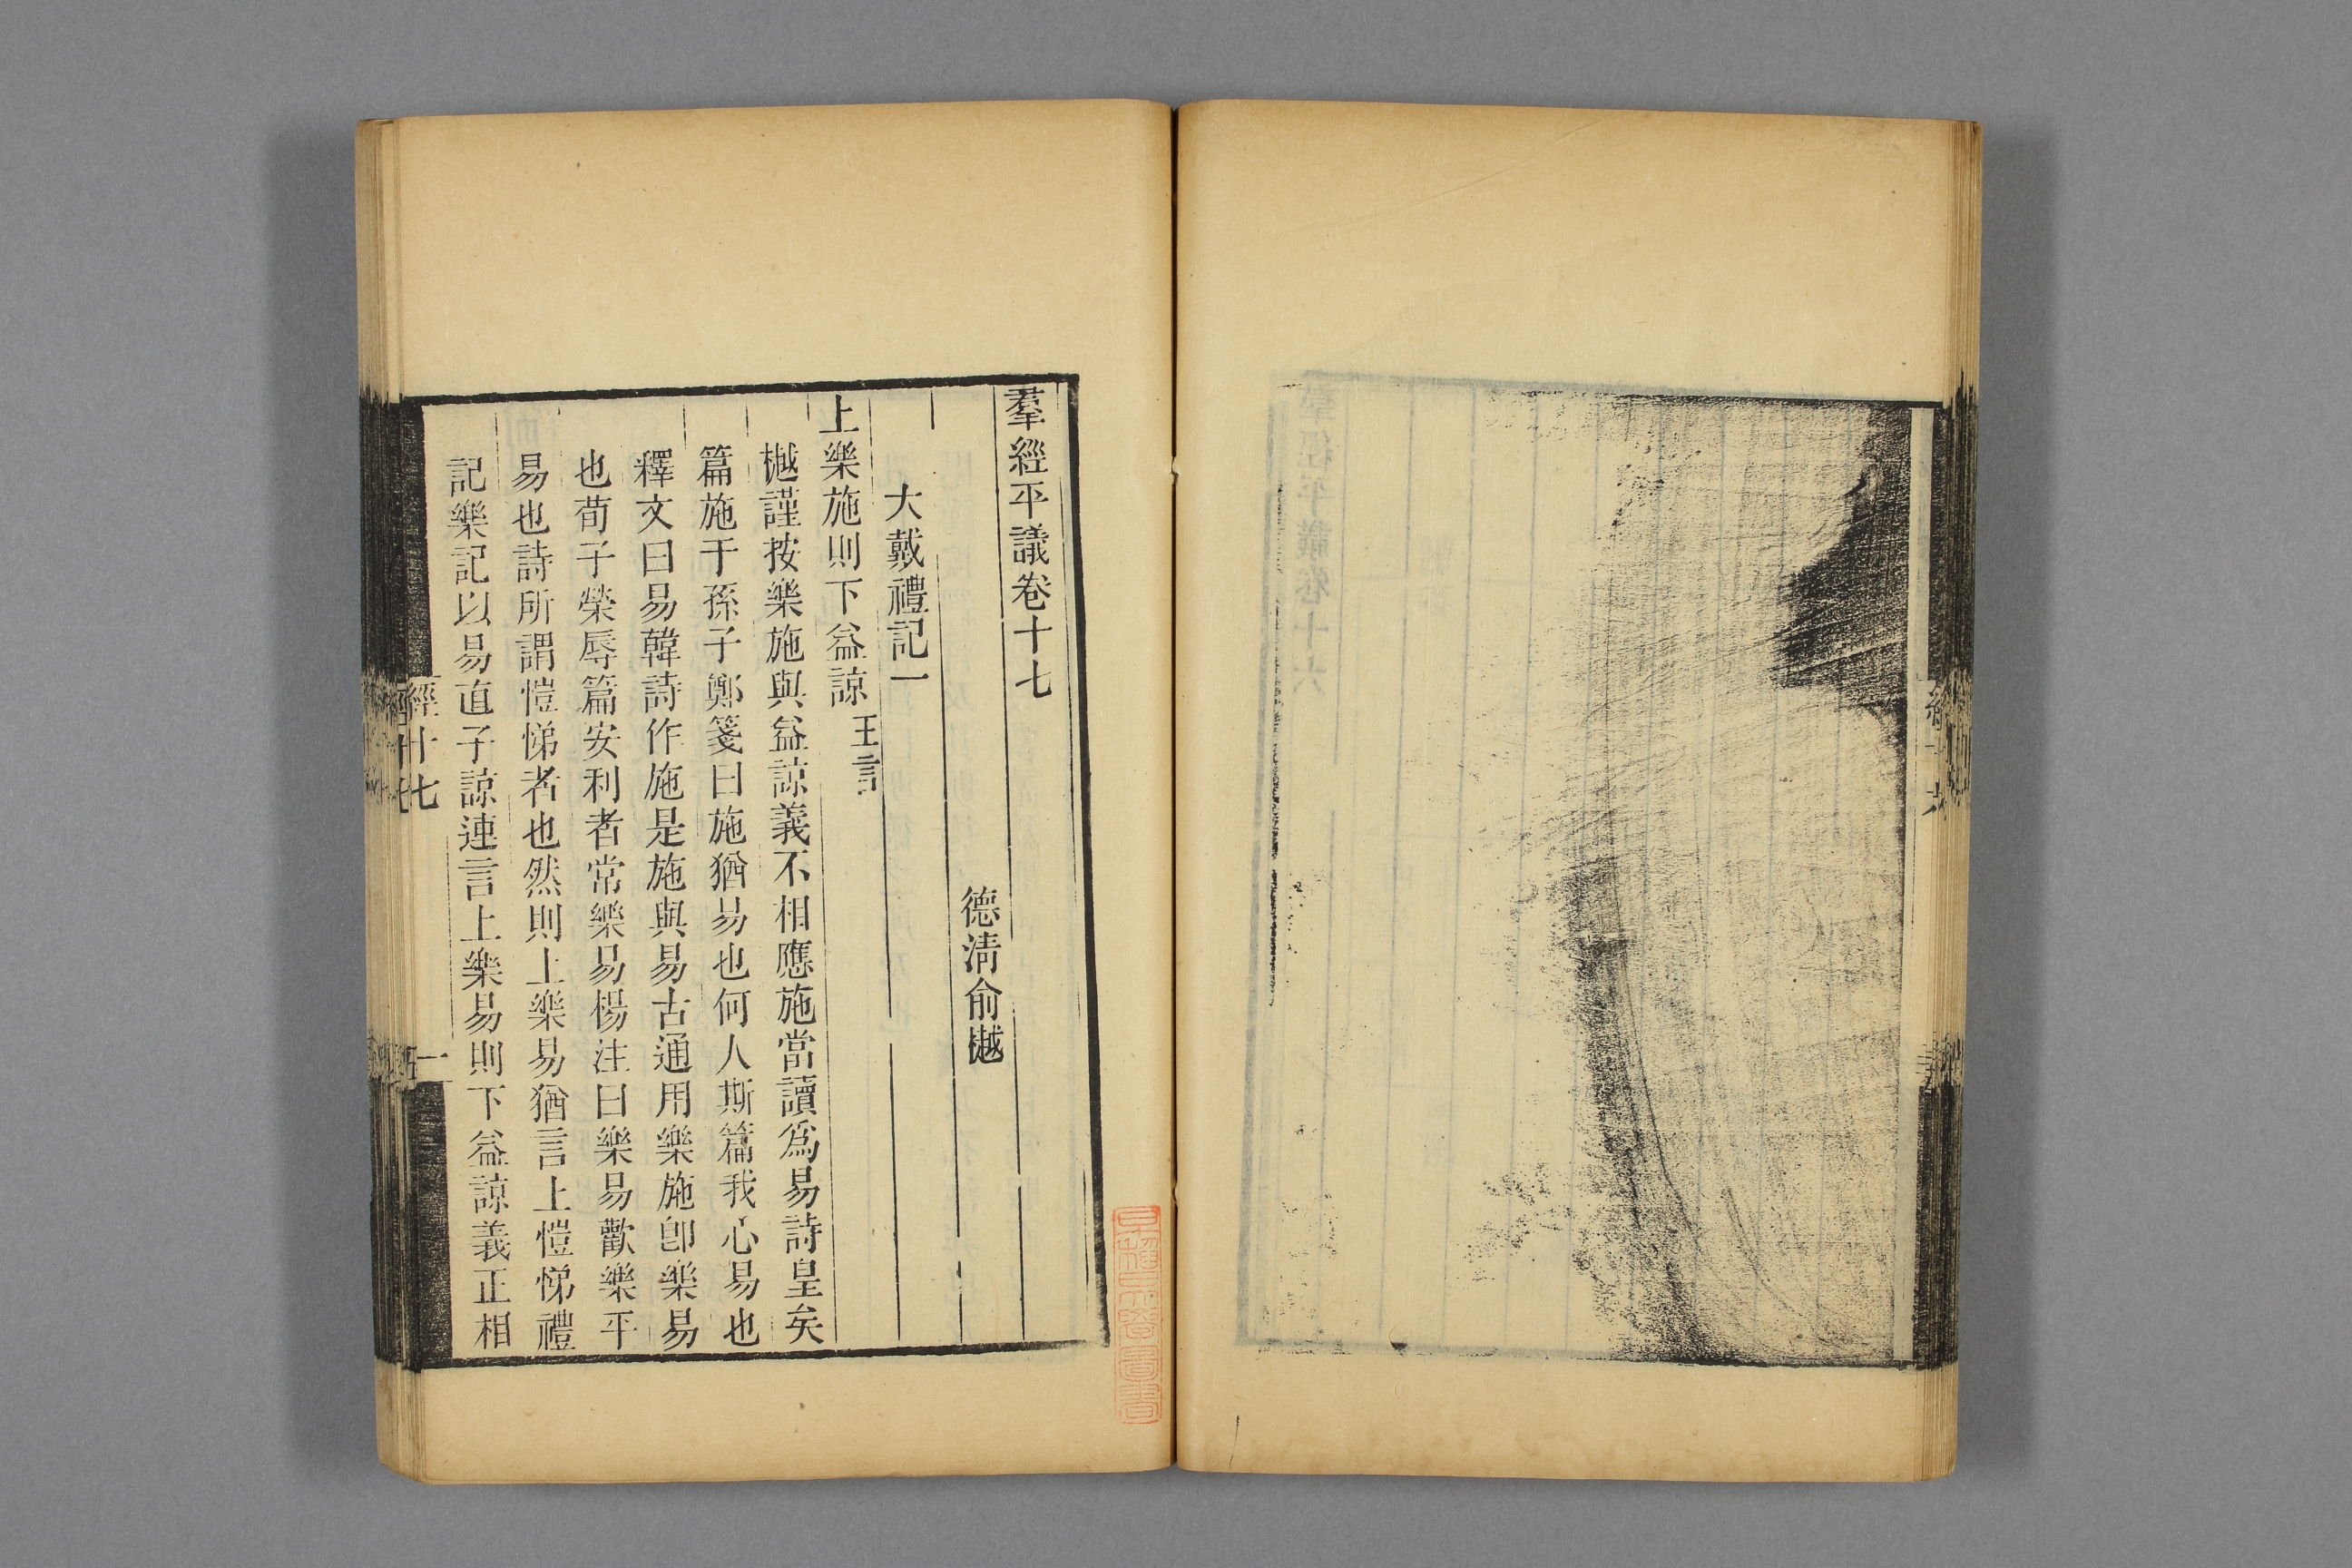 羣經平議卷十七
德清俞樾
大戴禮記一
上樂施則下益諒王言
樾謹按樂施與益諒義不相應施當讀爲易詩皇矣
篇施于孫子鄭箋曰施猶易也何人斯篇我心易也
釋文曰易韓詩作施是施與易古通用樂施卽樂易
也荀子榮辱篇安利者常樂易楊注曰樂易歡樂平
易也詩所謂愷悌者也然則上樂易猶言上愷悌禮
記樂記以易直子諒連言上樂易則下益諒義正相
經十七
一